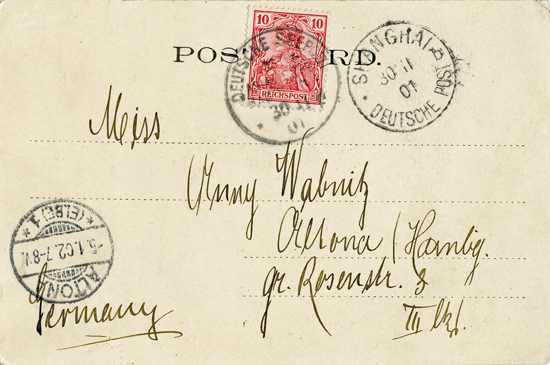 10 10
REICHSPOST
POST CARD.
DEUTSCHE SEEPOST
30
01
SHANGHAI
30 11
01
DEUTSCHE POST
Miss
Anny Wabnitz
Altona / Hambg.
gr. Rosenstr. 3
III
Germany
ALTONA
5.1.02.7-8V.
*(ELBE)1*